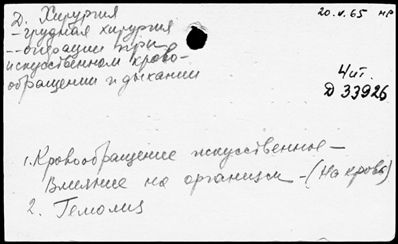 Д. Хирургия
20.V.65 нр
- грудная хирургия
-- операции при
искусственном крово-
обращении и дыхании
Чит.
Д 33926
1. Кровообращение искусственное -
Влияние на организм - (На кровь)
2. Гемолиз